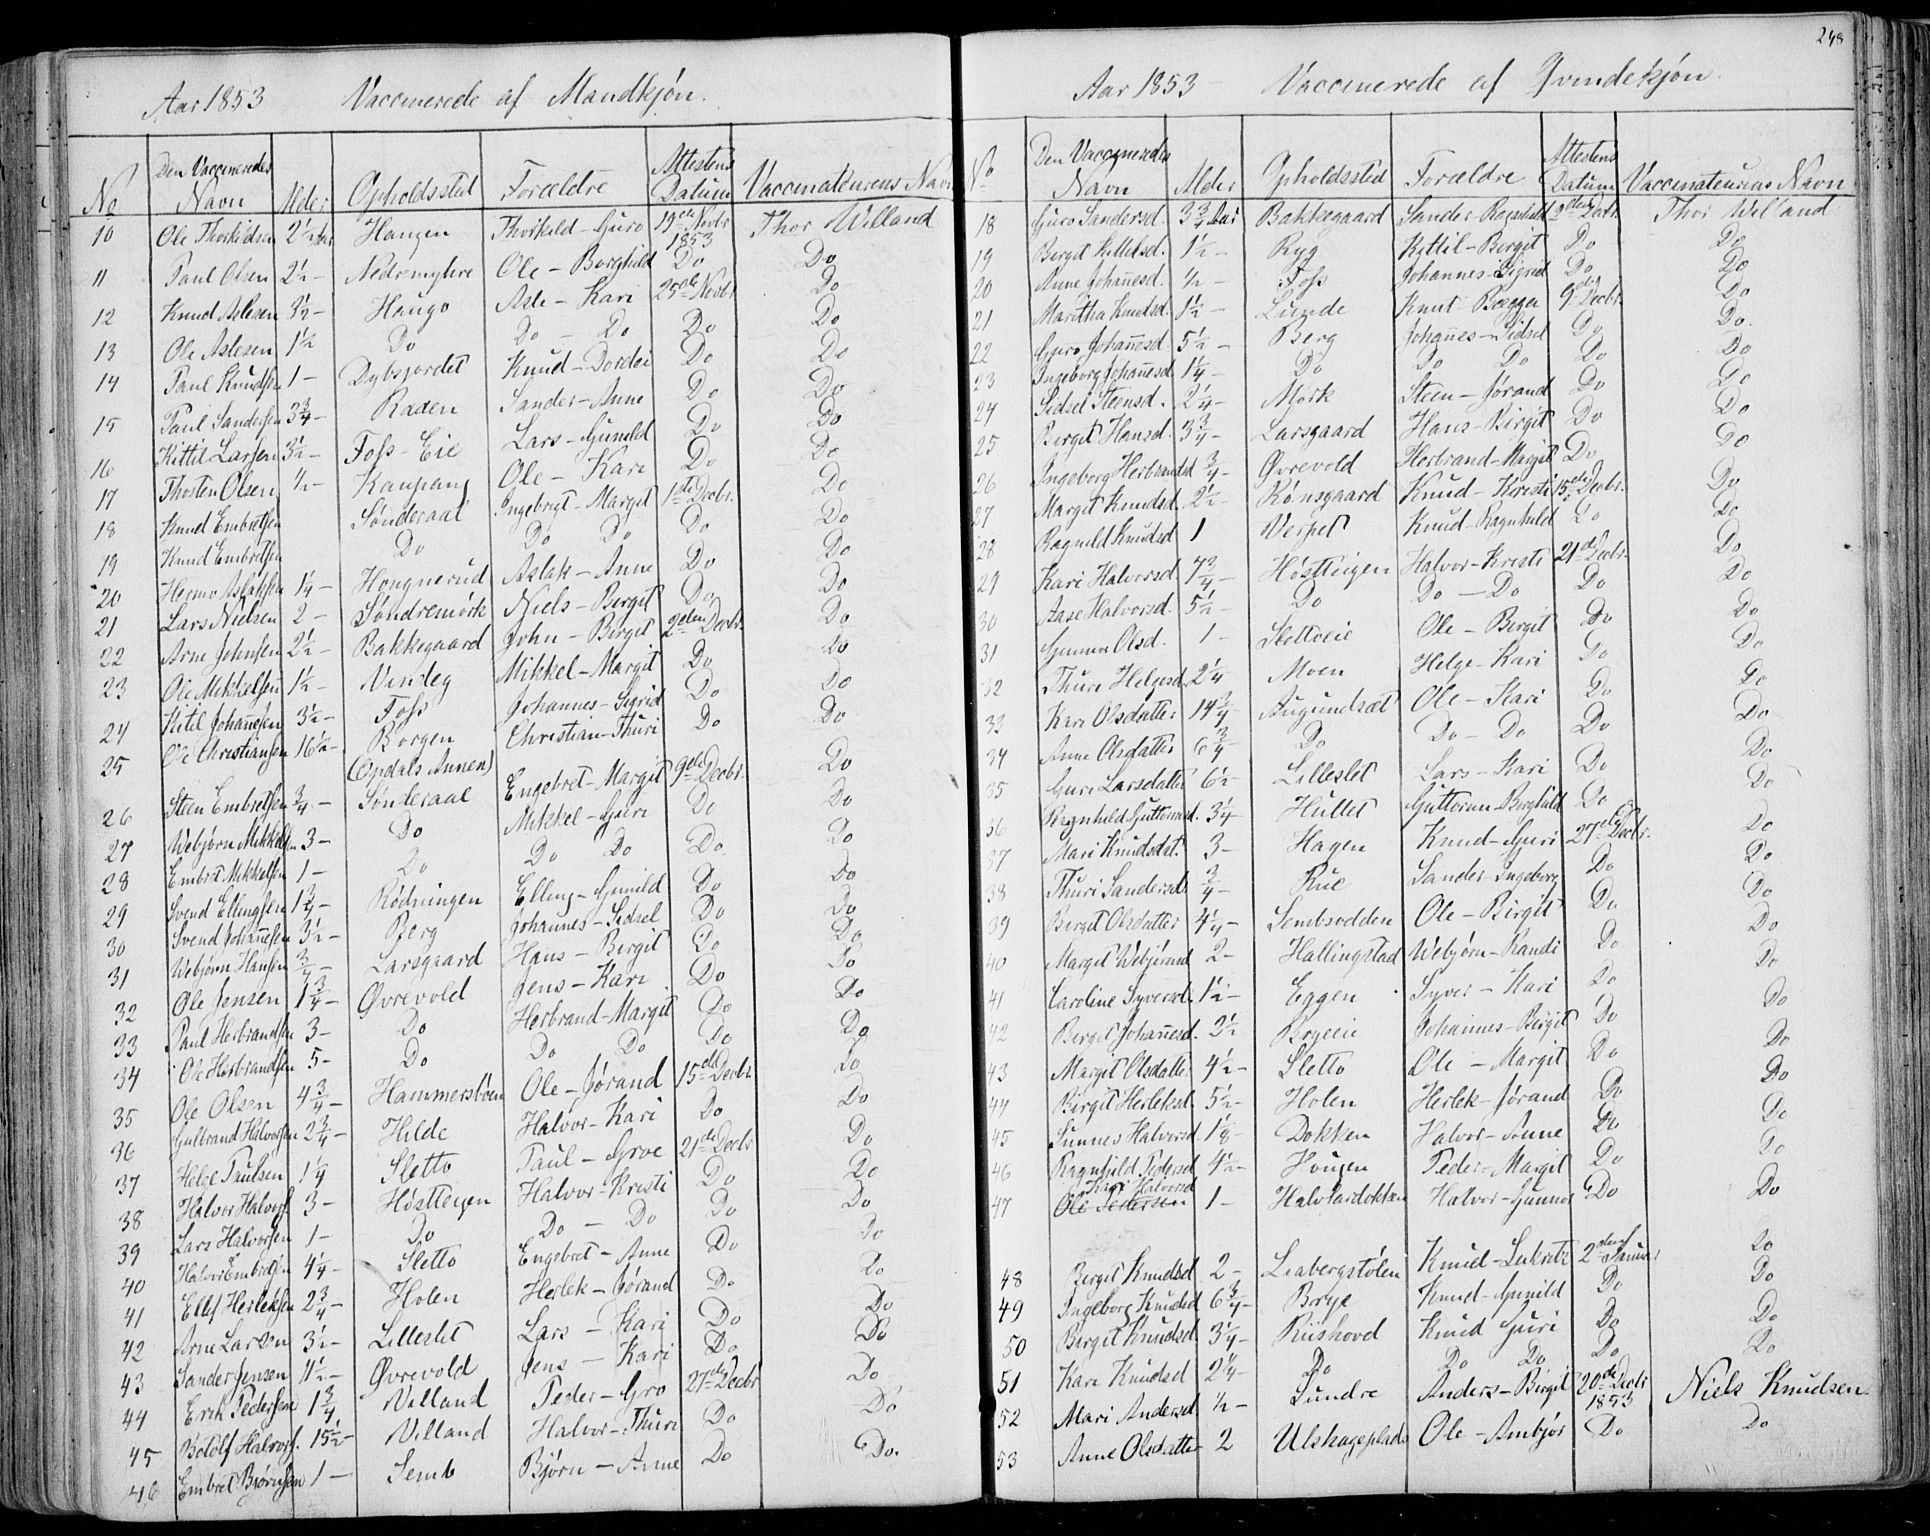 248
Aar 1853 Vaccinerede af Mandkjøn.
No Den Vaccineredes Navn Alder Opholdssted Forældre Attestens Datum Vaccinateurens Navn
10 Ole Thorkildsen 2½ Aar Haugen Thorkild - Guro 19de Novbr 1853 Thor Villand
11 Paul Olsen 2½ - Nedremyhre Ole - Borghild Do Do
12 Knud Aslesen 3½ - Haugo Asle - Kari 25de Novbr Do
13 Ole Aslesen 1½ Do Do - Do Do Do
14 Paul Knudsen 1 - Dybsjordet Knud - Dordei Do Do
15 Paul Sandersen 3¾ - Raaen Sander - Anne Do Do
16 Kittil Larsen 3½ - Foss-Eie Lars - Gunild Do Do
17 Thosten Olsen ½ - Kaupang Ole - Kari Do Do
18 Knud Embretsen Sønderaal Ingebrigt - Margit 1ste Decbr. Do
19 Knud Embretsen Do Do Do Do Do
20 Hermo Aslaksen 1¼ - Hougnerud Aslak - Anne Do Do
21 Lars Nielsen 2 - Søndremørk Niels - Bergit Do Do
22 Arne Johnsen 2½ - Bakkegaard John - Birgit 2den Decbr. Do
23 Ole Mikkelsen 1½ - Vindeg Mikkel - Margit Do Do
24 Kitil Johannesen 3½ - Foss Johannes - Sigrid Do Do
25 Ole Christiansen 16½ - Borgen (Opdals Annex) Christian - Thuri Do Do
26 Steen Embretsen ¾ - Sønderaal Engebret - Margit 9de Decbr. Do
27 Webjørn Mikkelsen 3 - Do Mikkel - Guri Do Do
28 Embret Mikkelsen 1 - Do Do Do Do Do
29 Svend Ellingsen 1¾ - Rødningen Elling - Gunild Do Do
30 Svend Johannesen 3½ - Berg Johannes - Sidsel Do Do
31 Webjørn Hansen ¾ - Larsgaard Hans - Birgit Do Do
32 Ole Jensen 1¾ - Øvrevold Jens - Kari Do Do
33 Paul Herbrandsen 3 - Do Herbrand - Margit Do Do
34 Ole Herbrandsen 5 - Do Do Do Do Do
35 Ole Olsen 4¾ - Hammersbøen Ole - Jørand 15de Decbr Do
36 Gulbrand Halvorsen 2¾ - Hilde Halvor - Kari Do Do
37 Helge Paulsen 1¼ Sletto Paul - Groe 21de Decbr Do
38 Halvor Halvors. 3 - Høstteigen Halvor - Kristi Do Do
39 Lars Halvorsen 1 - Do Do - Do Do Do
40 Halvor Embretsen 4¼ - Sletto Engebret - Anne Do Do
41 Ellef Herleksen 2¾ - Holen Herlek - Jørand Do Do
42 Arne Larsen 3½ - Lilleslet Lars - Kari Do Do
43 Sander Jensen 4½ - Øvrevold Jens - Kari Do Do
44 Erik Pedersen 1¾ Villand Peder - Gro 27de Decbr Do
45 Botolf Halvors. 15½ - Villand Halvor - Thuri Do Do
46 Embret Bjørnsen 1 - Semb Bjørn - Anne Do Do.
Aar 1853 Vaccinerede af Qvindekjøn.
No Den Vaccineredes Navn Alder Opholdssted Forældre Attestens Datum Vaccinateurens Navn
18 Guro Sandersd. 3¾ Aar Bakkegaard Sander - Ragnhild 2den Decbr. Thor Villand
19 Bergit Kittelsd. 1½ - Ryg Kittil - Birgit Do Do
20 Anne Johannesd. ½ - Foss Johannes - Sigrid Do Do
21 Maritha Knudsd. 1½ - Lunde Knut - Bægga 9de Decbr. Do
22 Guro Johannesd. 5½ - Berg Johannes - Sidsel Do Do.
23 Ingeborg Johannesd. 1¼ - Do Do Do Do Do
24 Sidsel Steensd. 2¼ - Mørk Steen - Jørand Do Do
25 Birgit Hansd. 3¾ - Larsgaard Hans - Birgit Do Do
26 Ingeborg Herbrandsd ¾ - Øvrevold Herbrand - Margit Do Do
27 Margit Knudsd. 2½ - Rønsgaard Knud - Kristi 15de Decbr. Do
28 Ragnild Knudsd 1 Verpet Knud - Ragnhild Do Do
29 Kari Halvorsd. 7¾ - Høstteigen Halvor - Kristi 21de Decbr. Do
30 Aase Halvorsd. 5½ - Do Do - Do Do Do
31 Gunnor Olsd. 1 - Slettoeie Ole - Birgit Do Do
32 Thuri Helgesd. 2¼ Moen Helge - Kari Do Do
33 Kari Olsdatter 14¾ Augundsæt Ole - Kari Do Do
34 Anne Olsdatter 6¾ - Do Do - Do Do Do
35 Guri Larsdatter 6½ - Lilleslet Lars - Kari Do Do
36 Ragnhild Guttormsd. 3¼ - Hullet Guttorm - Borghild Do Do
37 Mari Knudsdat. 3 - Hagen Knud - Guri 27de Decbr. Do
38 Thuri Sandersd. ¾ - Rue Sander - Ingeborg Do Do
39 Birgit Olsdatter 4¼ - Sembsodden Ole - Birgit Do Do
40 Margit Webjørnsd 2 - Hallingstad Webjørn - Randi Do Do
41 Caroline Syversd. 1½ - Eggen Syver - Kari Do Do
42 Bergit Johannesd. 3½ Bryeeie Johannes - Birgit Do Do
43 Margit Olsdatter 4½ - Sletto Ole - Margit Do Do
44 Birgit Herleksd. 5½ - Holen Herlek - Jørand Do Do
45 Sunnev Halvorsd 1⅛ - Dokken Halvor - Anne Do Do
46 Ragnhild Pedersd 4½ - Hougen Peder - Margit Do Do
47 Kari Halvorsd Ole Pedersen 1 - Halvlardokken Halvor - Gunnor Do Do
48 Bergit Knudsd 2 - Liabergstølen Knud - 2den Januar Do
49 Ingeborg Knudsd 6¾ - Brye Knud - Gunild Do Do
50 Birgit Knudsd. 3¼ - Riishovd Knud Guri Do Do
51 Kari Knudsd 2¼ - Do Do Do Do Do
52 Mari Andersd. ½ - Sundre Anders - Birgit 20de Decbr 1853 Niels Knudsen
53 Anne Olsdatter 2 Ulshageplads Ole - Ambjør Do Do